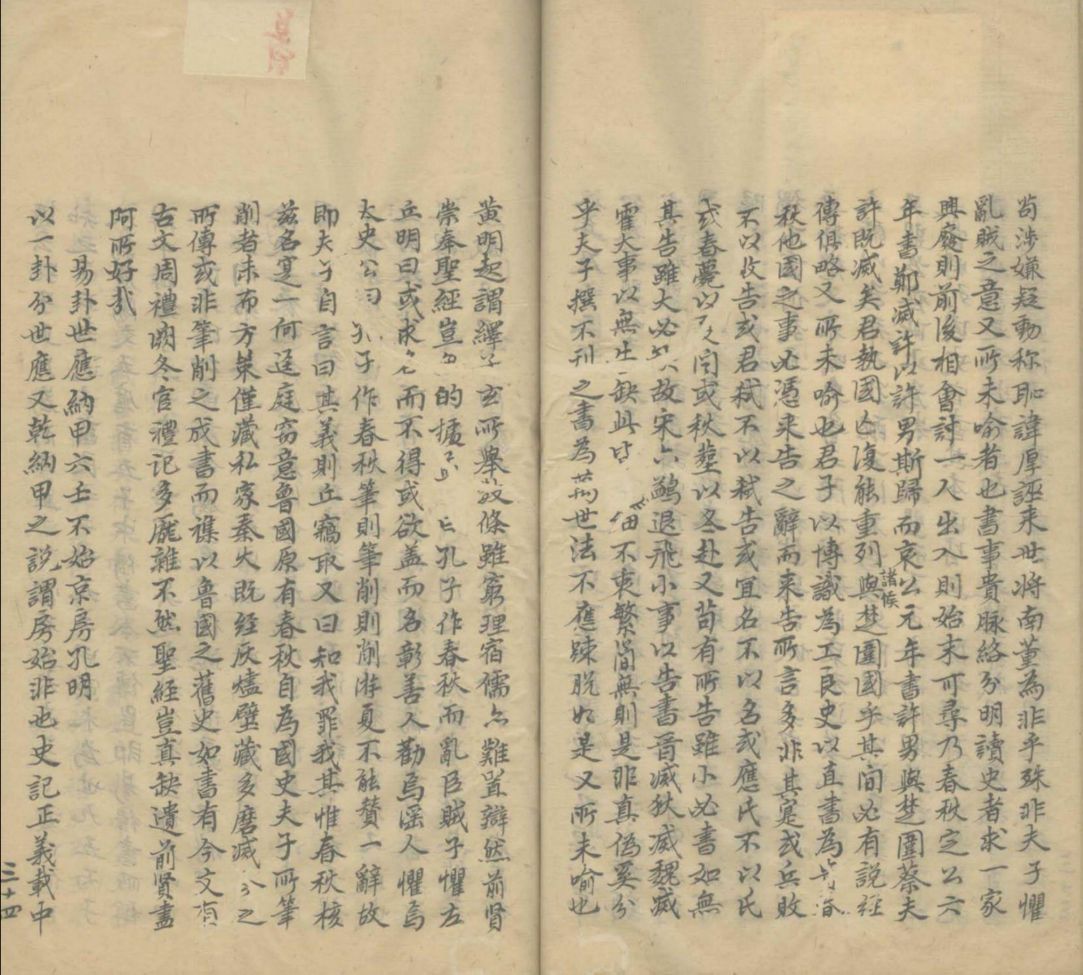 苟涉嫌疑動称恥諱厚誣来世将南董為非乎殊非夫子懼
亂賊之意又所未喻者也書事貴脉絡分明讀史者求一家
興廢則前後相會討一人出入則始末可尋乃春秋定公六
年書鄭滅許以許男斯歸而哀公元年書許男與楚圍蔡夫
許既滅矣君執國亡復能重列諸侯與楚圍國乎其間必有説経
傳俱略又所未喻也君子以博識為工良史以直書為
秋他國之事必憑来告之辭而来告所言多非其寔或兵敗
不以敗告或君弑不以弑告或宜名不以名或應氏不以氏
或春薨以 聞或秋塟以冬赴又苟有所告雖小必書如無
其告雖大必 故宋六鷁退飛小事以告書晋滅狄滅魏滅
霍大事以無 缺此 不衷繁简無則是非真偽奚分
乎夫子撰不刊之書為萬世法不應踈脱如是又所未喻也
黄明起謂繹子玄所舉數條雖窮理宿儒亦難置辯然前賢
崇奉聖經豈 的據 孔子作春秋而亂臣賊子懼左
丘明曰或求名而不得或欲盖而名彰善人勸焉滛人懼焉
太史公曰孔子作春秋筆則筆削則削游夏不能賛一辭故
即夫子自言曰其義則丘竊取又曰知我罪我其惟春秋核
兹名寔一何逕庭窃意魯國原有春秋自為國史夫子所筆
削者未布方䇿僅藏私家秦火既經灰燼壁藏多磨滅 之
所傳或非筆削之成書而襍以魯國之舊史如書有今文
古文周禮闕冬官禮记多龎雜不然聖經豈真缺遺前賢盡
阿所好㢤
易卦世應納甲六壬不始京房孔明
以一卦分世應又乾納甲之説謂房始非也史記正義載中
三十四